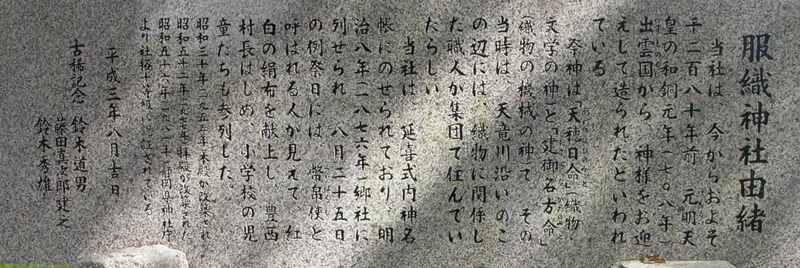 服織神社由緒
当社は 今からおよそ
千二百八十年前 元明天
皇の和銅元年(七〇八年)
出雲国から、神様をお迎
えして造られたといわれ
ている。
祭神は「天穂日命」(織物、
文字の神)と「建御名方命」
(織物の機械の神)で その
当時は、天竜川沿いのこ
の辺には、織物に関係し
た職人が集団で住んでい
たらしい。
当社は、延喜式内神名
帳にのせられており 明
治八年(一八七六年)郷社に
列せられ 八月二十五日
の例祭日には、幣帛使と
呼ばれる人が見えて 紅
白の絹布を献上し 豊西
村長はじめ、小学校の児
童たちも参列した。
昭和三十年(一九五五年)本殿が改築され
昭和五十二年(一九七七年)拝殿が改築された
昭和五十六年(一九八一年)静岡県神社庁
より社格十等級に認証されている
平成三年八月吉日
古稀記念 鈴木道男
藤田真次郎 建之
鈴木秀雄